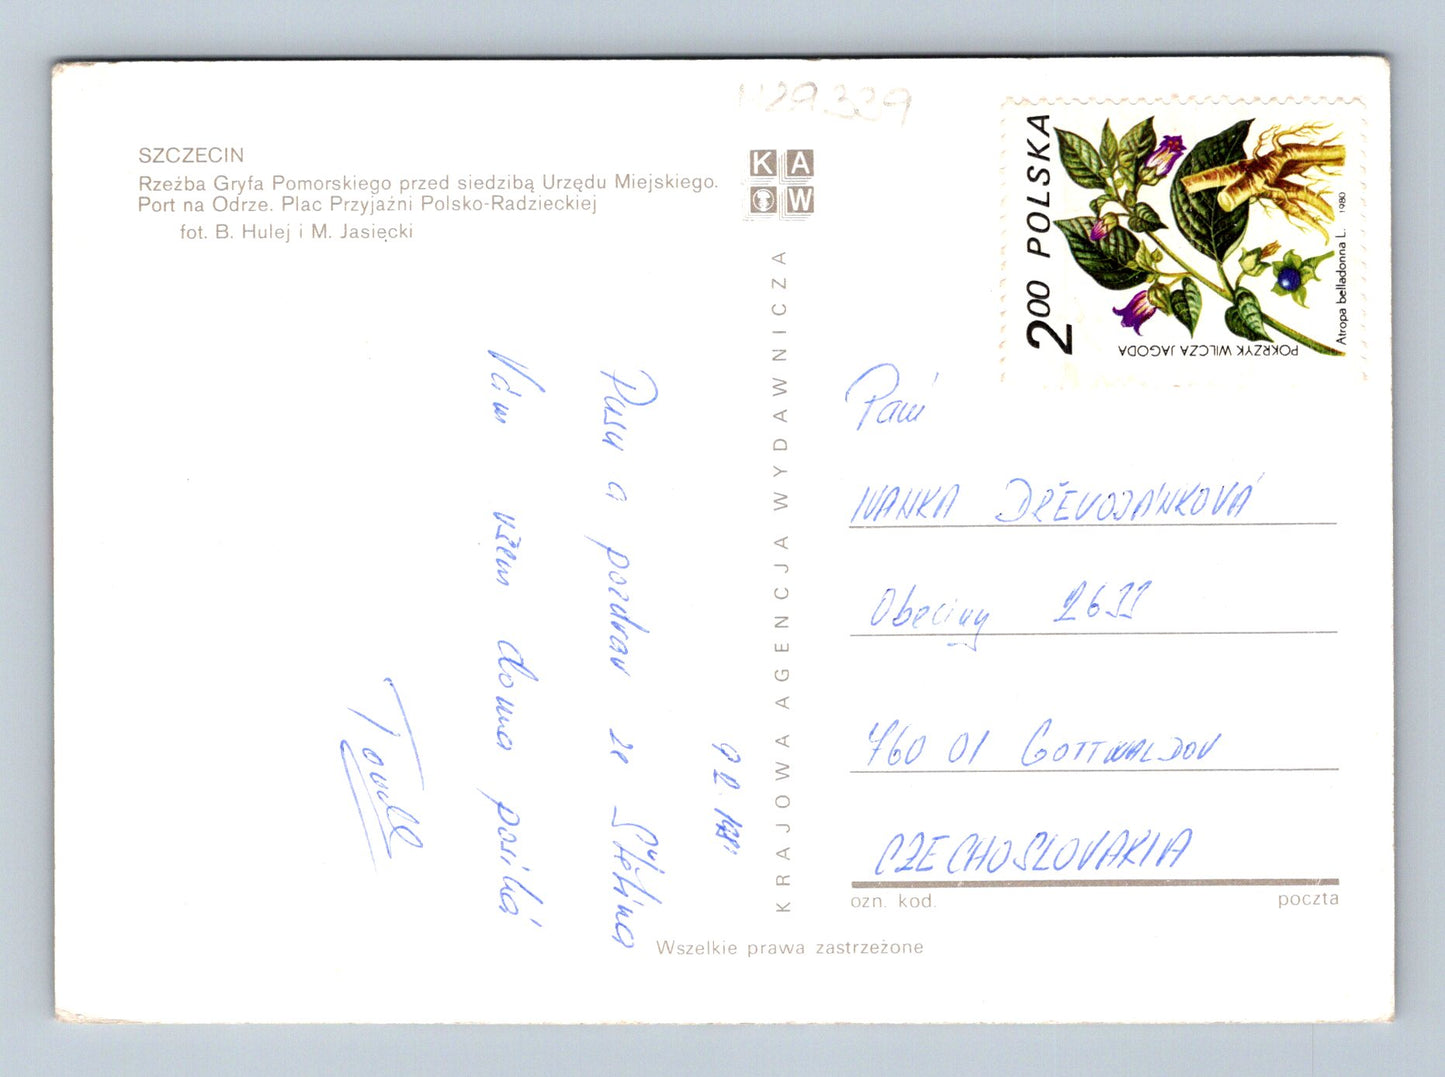 SZCZECIN
Rzeźba Gryfa Pomorskiego przed siedzibą Urzędu Miejskiego.
Port na Odrze. Plac Przyjaźni Polsko-Radzieckiej
fot. B. Hulej i M. Jasięcki
KAW
KRAJOWA AGENCJA WYDAWNICZA
2.00 POLSKA
POKRZYK WILCZA JAGODA
Atropa belladonna L. 1980
Pusu a pozdrav ze Štětína
Vám všem doma posílá
Paní
IVANKA DŘEVOJÁNKOVÁ
Obeciny 2611
760 01 GOTTWALDOV
CZECHOSLOVAKIA
ozn. kod.
poczta
Wszelkie prawa zastrzeżone